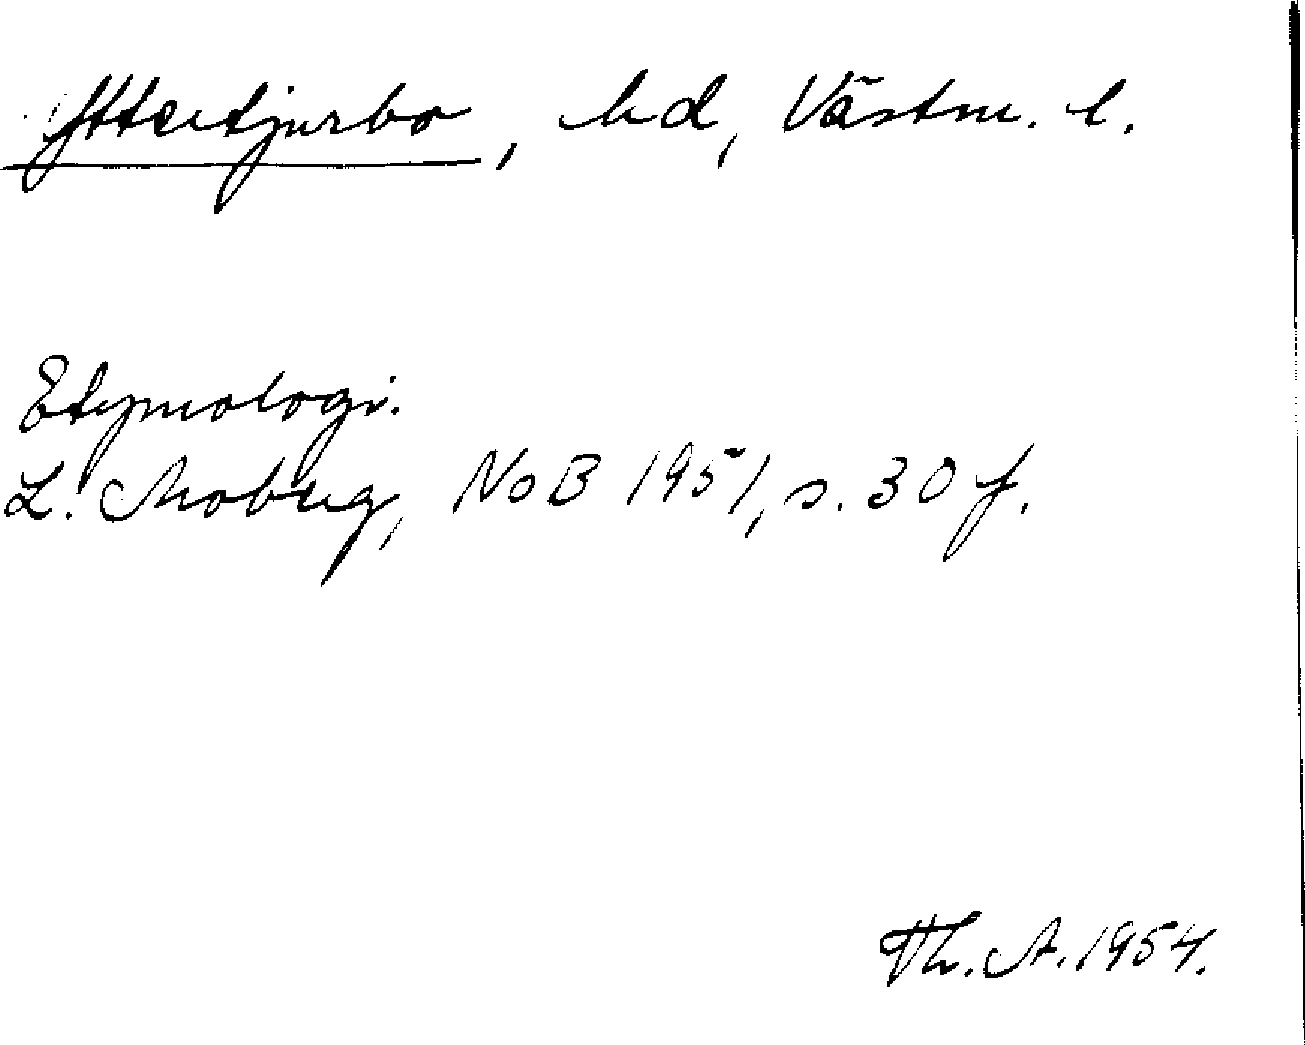 Yttertjurbo, hd, Västm. l.
Etymologi.
L. Moberg, NoB 1951, s. 30 f.
Th. A. 1954.